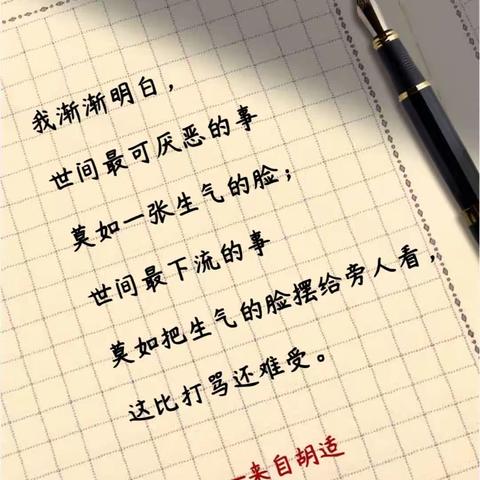 我渐渐明白，
世间最可厌恶的事
莫如一张生气的脸；
世间最下流的事
莫如把生气的脸摆给旁人看，
这比打骂还难受。
—来自胡适